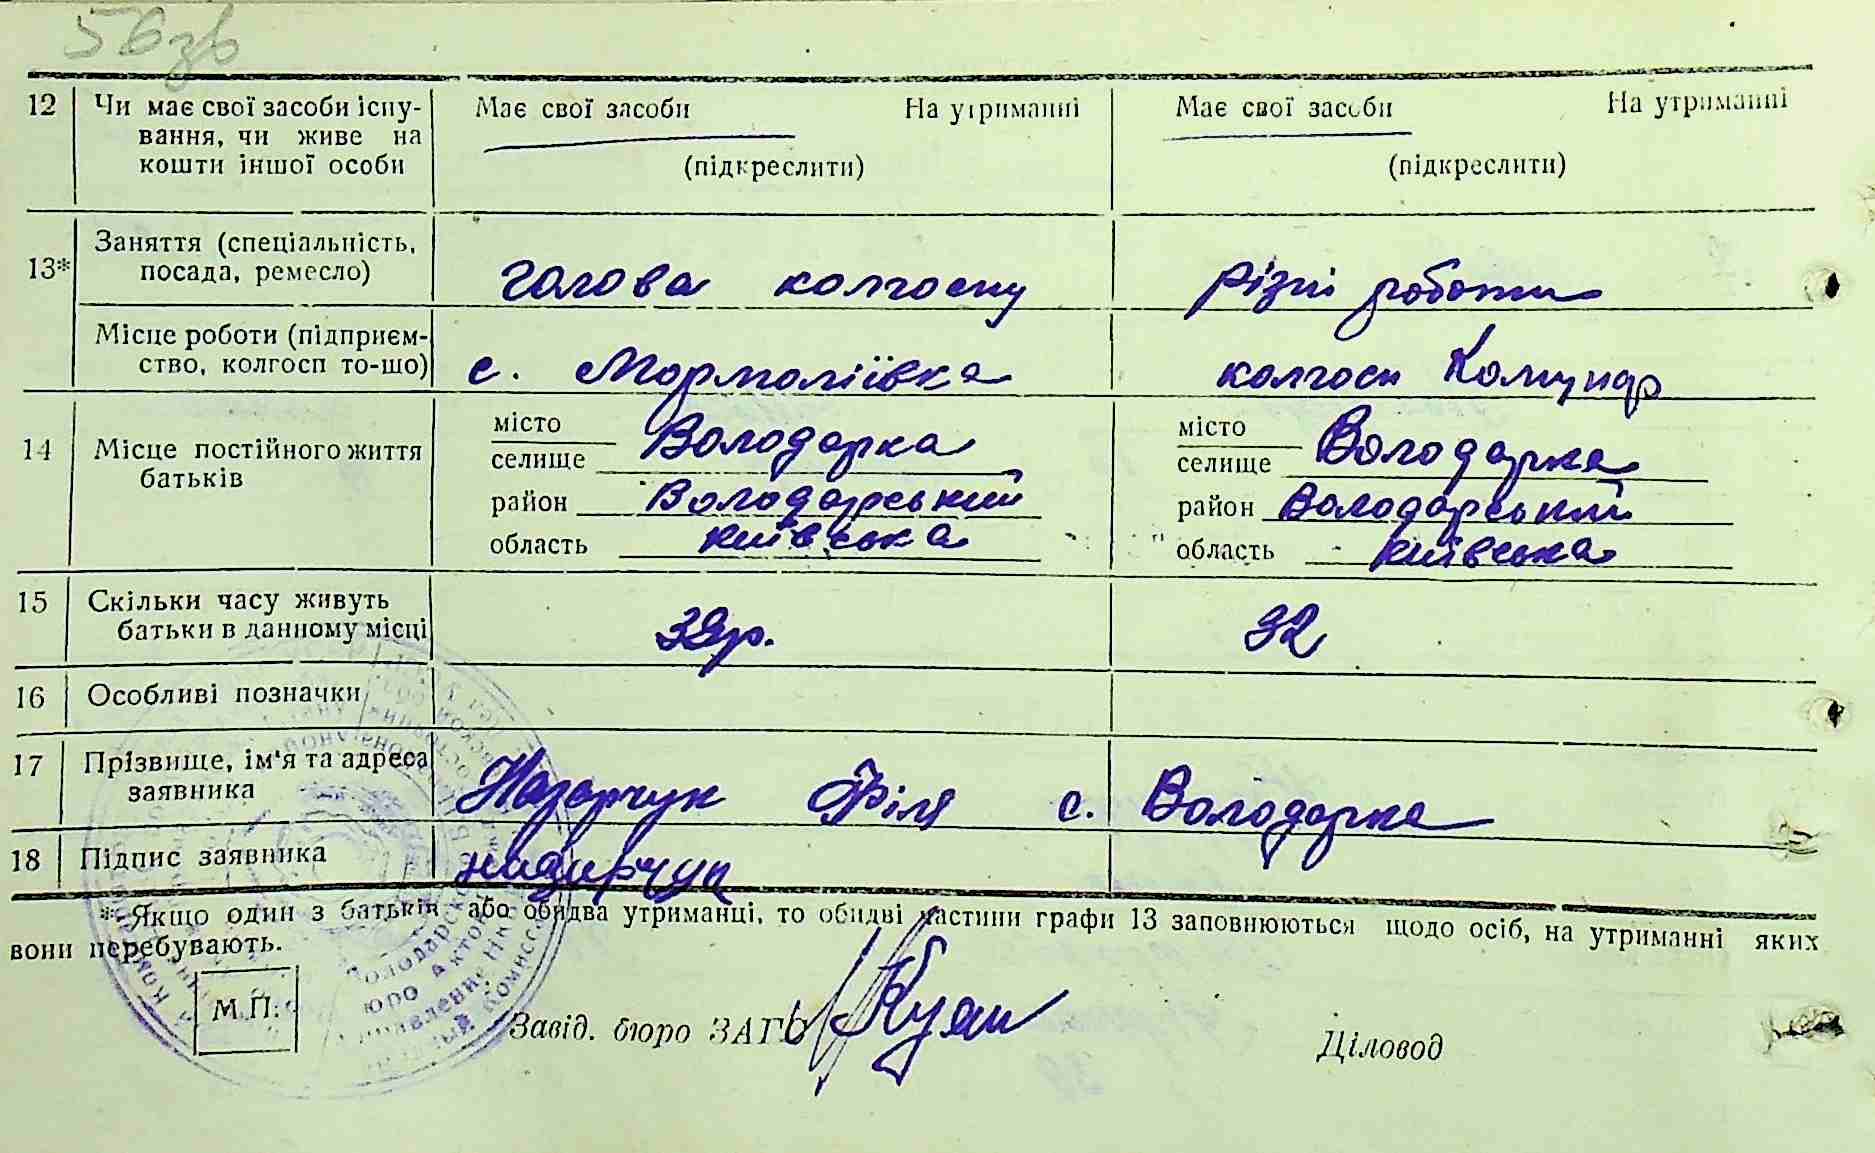 56зв
12 Чи має свої засоби існу- Має свої засоби На утриманні Має свої засоби На утриманні
вання, чи живе на
кошти іншої особи (підкреслити) (підкреслити)
Заняття (спеціальність,
13* посада, ремесло) голова колгоспу різні роботи
Місце роботи (підприєм-
ство, колгосп то-що) с. Мормоліївка колгосп Комунар
місто Володарка місто Володарка
14 Місце постійного життя селище селище
батьків район Володарський район Володарський
область київська область київська
15 Скільки часу живуть
батьки в данному місці 32р. 32
16 Особливі позначки
17 Прізвище, ім'я та адреса
заявника Назарчук Філя с. Володарка
18 Підпис заявника назарчук
* Якщо один з батьків або обидва утриманці, то обидві частини графи 13 заповнюються щодо осіб, на утриманні яких
вони перебувають.
М.П.
Завід. бюро ЗАГС
Діловод